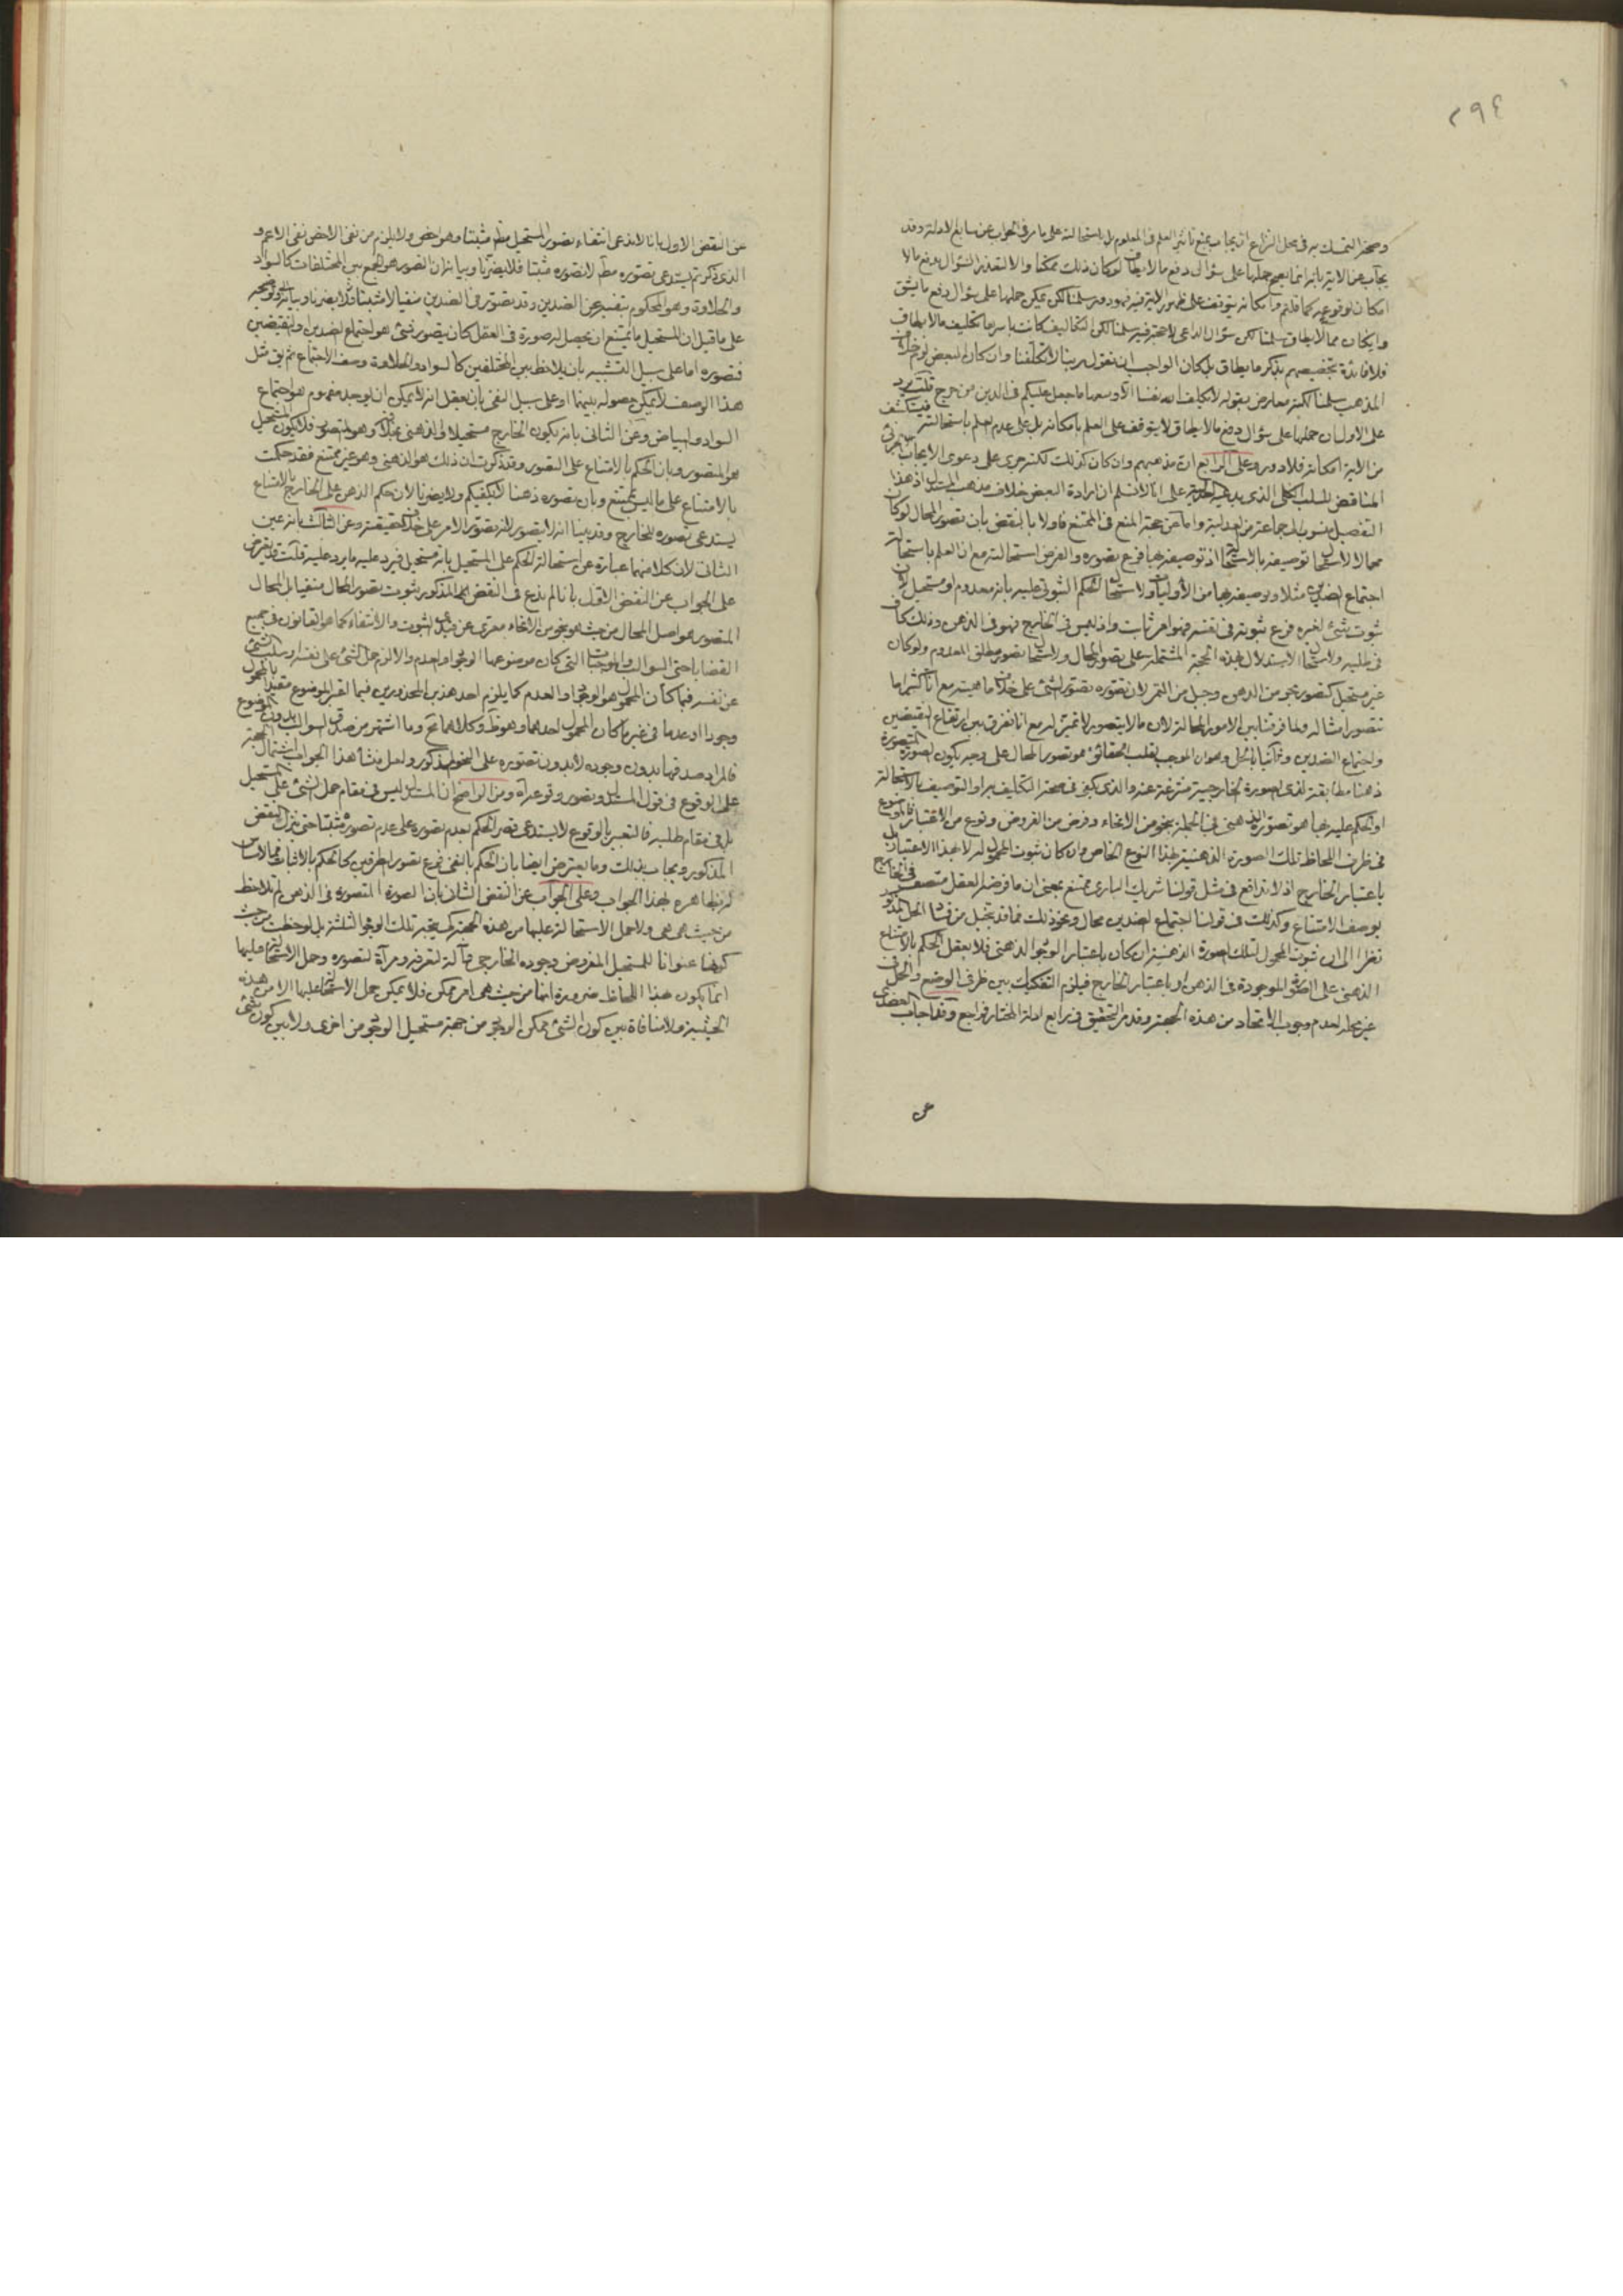 ٢٩٤
وصحة التمسك به في محل النزاع ان يجاب بمنع تاثير العلم في المعلوم بل باستحالته على ما مر في الجواب عن سابع الادلة وقد
يجاب عن الاية بانه انما يصح حملها على سؤال دفع ما لا يطاق لو كان ذلك ممكنا والا لتعذر السؤال بدفع ما لا
امكان لوقوعه كما قلتم وامكانه يتوقف على ظهور الاية فيه فهو دور سلمنا لكن يمكن حملها على سؤال دفع ما يشق
وان كان مما لا يطاق سلمنا لكن سؤال الداعي لا حجة فيه سلمنا لكن التكاليف كانت باسرها تكليف ما لا يطاق
فلا فائدة بتخصيصهم بذكر ما يطاق بل كان الواجب ان تقول ربنا لا تكلفنا وان كان البعض لزم خلاف
المذهب سلمنا لكنه معارض بقوله لا يكلف الله نفسا الا وسعها ما جعل عليكم في الدين من حرج قلت يرد
على الاول ان حملها على سؤال دفع ما لا يطاق لا يتوقف على العلم بامكانه بل على عدم العلم باستحالته فينكشف
من الاية امكانه فلا دور وعلى الرابع ان مذهبهم وان كان كذلك لكنه جرى على دعوى الايجاب الجزئي
المناقض للسلب الكلي الذي يدعيه على انا لا نسلم ان ارادة البعض خلاف مذهب المستدل اذ هذا
التفصيل منسوب الى جماعة من العدلية واما عن حجة المنع في الممتنع فاولا بالنقض بان تصور المحال لو كان
محالا لاستحال توصيفه بالاستحالة اذ توصيفه بها فرع تصوره والفرض استحالته مع ان العلم باستحالة
اجتماع الضدين مثلا وتوصيفه بها من الأوليات ولاستحال الحكم الثبوتي عليه بانه معدوم او مستحيل لان
ثبوت شئ لغيره فرع ثبوته في نفسه فهو امر ثابت واذ ليس في الخارج فهو في الذهن وذلك كاف
في طلبه ولاستحال الاستدلال بهذه الحجة المشتملة على تصور المحال ولاستحال تصور مطلق المعدوم ولو كان
غير مستحيل كتصور بحر من الدهن وجبل من التمر لان تصوره تصور الشئ على خلاف ماهيته مع انا كثيرا ما
نتصور امثاله ولما فرقنا بين الامور المحالة لان ما لا يتصور لا تميز له مع انا نفرق بين ارتفاع النقيضين
واجتماع الضدين وثانيا بالحل وهو ان الموجب لقلب الحقائق هو تصور المحال على وجه يكون الصورة المتصورة
ذهنا مطابقة لذي الصورة الخارجية منتزعة عنه والذي يكفي في صحة التكليف به او التوصيف بالاستحالة
او الحكم عليه بها هو تصوره الذهني في الجملة بنحو من الانحاء وفرض من الفروض ونوع من الاعتبار فالموضوع
في ظرف اللحاظ تلك الصورة الذهنية بهذا النوع الخاص وان كان ثبوت المحمول له لا بهذا الاعتبار بل
باعتبار الخارج اذ لا تدافع في مثل قولنا شريك الباري ممتنع بمعنى ان ما فرضه العقل متصف في الخارج
بوصف الامتناع وكذلك في قولنا اجتماع الضدين محال ونحو ذلك فما قد يتخيل من فساد الحل المذكور
نظرا الى ان ثبوت المحمول لتلك الصورة الذهنية ان كان باعتبار الوجود الذهني فلا يعقل الحكم بالامتناع
الذهني على الصورة الموجودة في الذهن او باعتبار الخارج فيلزم التفكيك بين ظرفي الوضع والحمل في
غير محله لعدم وجوب الاتحاد من هذه الجهة وقد مر التحقيق في رابع ادلة المختار فراجع وقد اجاب العضدي
عن
عن النقض الاول بانا لا ندعي انتفاء تصور المستحيل مطلقا بل مثبتا وهو اخص ولا يلزم من نفي الاخص نفي الاعم و
الذي ذكرتم يستدعي تصوره مطلقا لا تصوره مثبتا فلا يضرنا وبيانه ان التصور هو الجمع بين المختلفات كالسواد
والحلاوة وهو المحكوم بنفيه عن الضدين وقد تصور في الضدين منفيا لا مثبتا فلا يضرنا وبيانه
على ما قيل ان المستحيل ما يمتنع ان يحصل له صورة في العقل كان يتصور شئ هو اجتماع الضدين او النقيضين
فتصوره اما على سبيل التشبيه بان يلاحظ بين المختلفين كالسواد والحلاوة وصف الاجتماع ثم يقال مثل
هذا الوصف لا يمكن حصوله بينهما او على سبيل النفي بان يعقل انه لا يمكن ان يوجد مفهوم هو اجتماع
السواد والبياض وعن الثاني بانه يكون الخارج مستحيلا والذهني بخلافه وهو المتصور فلا يكون المستحيل
هو المتصور وبان الحكم بالامتناع على التصور وقد ذكرت ان ذلك هو الذهني وهو غير ممتنع فقد حكمت
بالامتناع على ما ليس بممتنع وبان تصوره ذهنا لا يكفيكم ولا يضرنا لان حكم الذهن على الخارج بالامتناع
يستدعي تصوره للخارج وقد بينا انه لا يتصور لانه تصور الامر على خلاف حقيقته وعن الثالث بانه عين
الثاني لان كلا منهما عبارة عن استحالة الحكم على المستحيل بانه مستحيل فيرد عليه ما يرد عليه قلت ويعترض
على الجواب عن النقض الاول بانا لم ندع في النقض المذكور ثبوت تصور المحال منفيا بل المحال
المتصور هو اصل المحال من حيث هو بنحو من الانحاء معرى عن قيد الثبوت والانتفاء كما هو القانون في جميع
القضايا حتى السوالب والموجبات التي كان موضوعها الوجود او العدم والا لزم حمل الشئ على نفسه او سلب الشئ
عن نفسه فيما كان المحمول هو الوجود او العدم كما يلزم احد هذين المحذورين فيما اعتبر الموضوع مقيدا بالمحمول
وجودا او عدما في غير ما كان المحمول احدهما وهو ظ وكلاهما مح وما اشتهر من صدق السوالب بدون الموضوع
فالمراد صدقها بدون وجوده لا بدون تصوره على النحو المذكور ولعل منشأ هذا الجواب اشتمال الحجة
على الوقوع في قول المستدل وتصور وقوعه آه ومن الواضح ان المستدل ليس في مقام حمل الشئ على المستحيل
بل في مقام طلبه فالتعبير بالوقوع لا يستدعي قصر الحكم بعدم تصوره على عدم تصوره مثبتا حتى ينزل النقض
المذكور ويجاب بذلك وما يعترض ايضا بان الحكم بالنفي فرع تصور الطرفين كالحكم بالاثبات فمما لا مساس
له بظاهره بهذا الجواب وعلى الجواب عن النقض الثاني بان الصورة المتصورة في الذهن لم تلاحظ
من حيث هي هي ولا حمل الاستحالة عليها من هذه الجهة كي يتجه تلك الوجوه الثلثة بل لوحظت من حيث
كونها عنوانا للمستحيل المفروض وجوده الخارجي وآلة لتعرفه ومرآة لتصوره وحمل الاستحالة عليها
انما يكون بهذا اللحاظ ضرورة انها من حيث هي امر ممكن فلا يمكن حمل الاستحالة عليها الا من هذه
الحيثية ولا منافاة بين كون الشئ ممكن الوجود من جهة مستحيل الوجود من اخرى ولا بين كون شئ